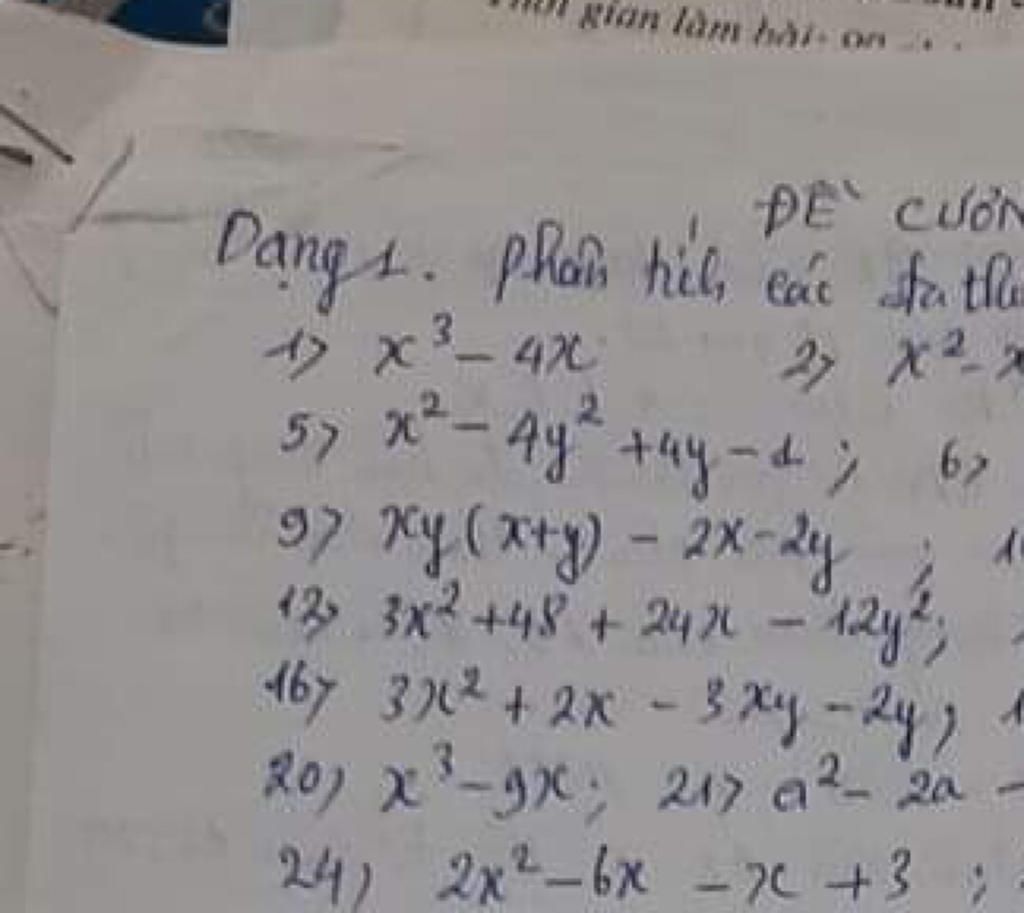 gian làm bài:
ĐỀ CƯƠN
Dạng 1. Phân tích các đa th
1) x³ - 4x 2) x² - x
5) x² - 4y² + 4y - 1 ; 6)
9) xy(x+y) - 2x - 2y ; 1
12) 3x² + 48 + 24x - 12y² ;
16) 3x² + 2x - 3xy - 2y ; 1
20) x³ - 9x ; 21) a² - 2a -
24) 2x² - 6x - x + 3 ;